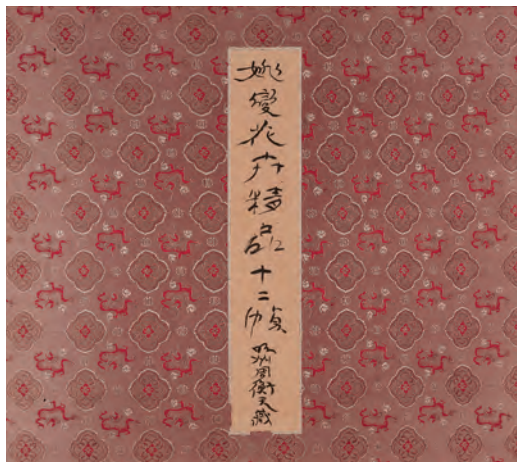 姚燮花卉精品十二幀
明州周衡天藏